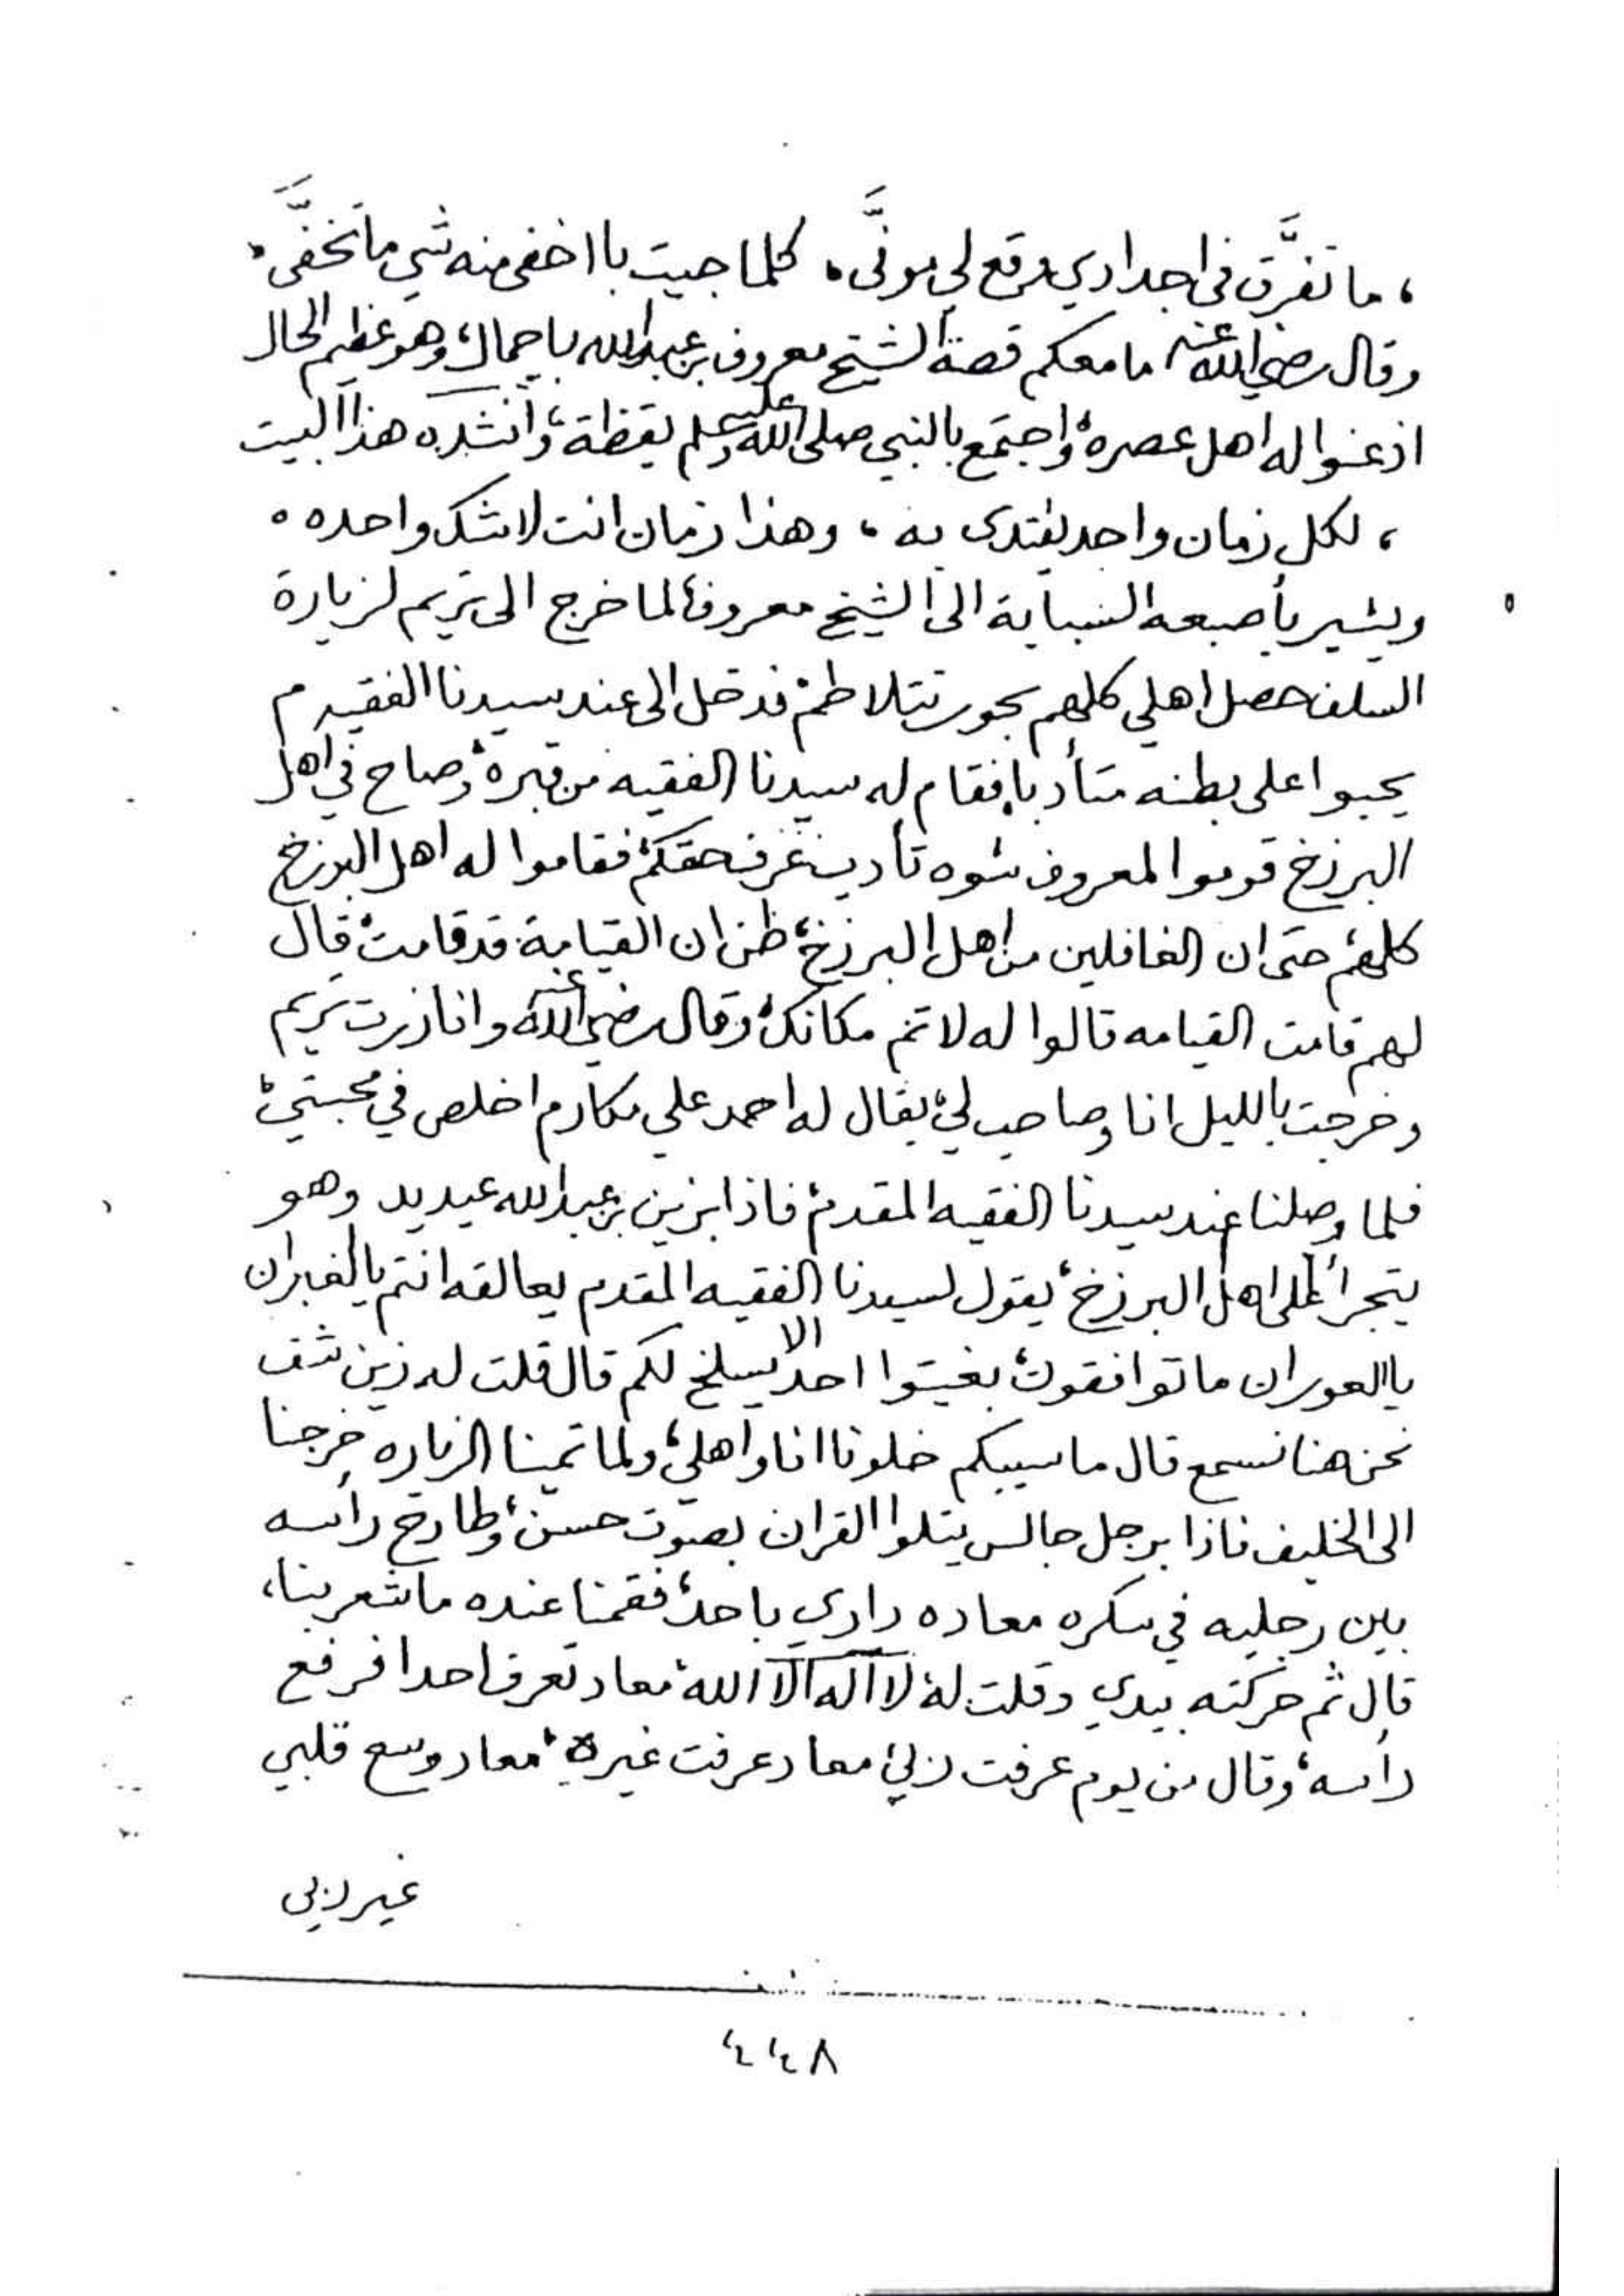 ، ما تفرَّق في اجدادي وقع لي موفَّى ، كلما جيت با اخفي منه شي ما تخفَّى ،
وقال رضي الله عنه ما معكم قصة الشيخ معروف بن عبدالله باجمال، وهو عظيم الحال
اذعنوا له اهل عصره، واجتمع بالنبي صلى الله عليه وسلم يقظة، وانشده هذا البيت
، لكل زمان واحد يقتدى به ، وهذا زمان انت لا شك واحده ،
ويشير بأصبعه السبابة الى الشيخ معروف، لما خرج الى تريم لزيارة
السلف حصل اهلي كلهم بحور تتلاطم، فدخل الى عند سيدنا الفقيه م
يحبوا على بطنه متأدبا، فقام له سيدنا الفقيه من قبره، وصاح في اهل
البرزخ قوموا المعروف شوه تأدب عرف حقكم، فقاموا له اهل البرزخ
كلهم، حتى ان الغافلين من اهل البرزخ، ظن ان القيامة قد قامت، قال
لهم قامت القيامه قالوا له لا تم مكانك، وقال رضي الله عنه وانا زرت تريم
وخرجت بالليل انا وصاحب لي، يقال له احمد علي مكارم اخلص في محبتي،
فلما وصلنا عند سيدنا الفقيه المقدم، فاذا بزين بن عبدالله عيديد وهو
يتجرأ على اهل البرزخ، يقول لسيدنا الفقيه المقدم يعالقه انتم يالغبران
يالعوران ما توافقون، بغيتوا احد الا يسلخ لكم قال قلت له زين شف
نحن هنا نسمع قال ما سيبكم خلونا انا واهلي، ولما تمينا الزياره خرجنا
الى الخليف فاذا برجل جالس يتلوا القران بصوت حسن، وطارح رأسه
بين رجليه في سكره معاده داري باحد، فقمنا عنده ما شعر بنا،
قال ثم حركته بيدي وقلت له، لا آله الا الله، معاد تعرف احدا فرفع
رأسه، وقال من يوم عرفت ربي، معاد عرفت غيره، معاد وسع قلبي
غير ربي
٤٤٨